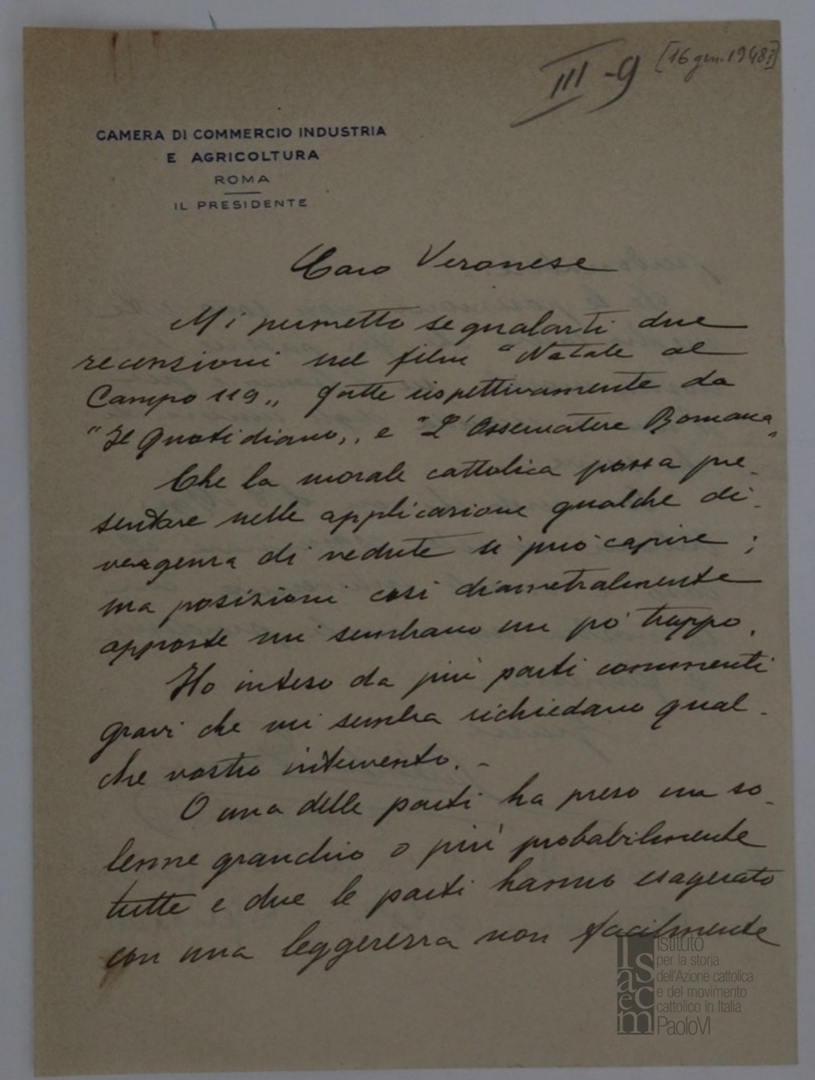 III-9 [16 gen. 1948?]
CAMERA DI COMMERCIO INDUSTRIA
E AGRICOLTURA
ROMA
IL PRESIDENTE
Caro Veronese
Mi permetto segnalarti due
recensioni nel film "Natale al
Campo 119„ fatte rispettivamente da
"Il Quotidiano„ e "L'Osservatore Romano„
Che la morale cattolica possa pre-
sentare nelle applicazione qualche di-
vergenza di vedute si può capire;
ma posizioni così diametralmente
opposte mi sembrano un po' troppo.
Ho inteso da più parti commenti
gravi che mi sembra richiedano qual-
che vostro intervento. -
O una delle parti ha preso un so-
lenne granchio o più probabilmente
tutte e due le parti hanno esagerato
con una leggerezza non facilmente
Isacem
Istituto
per la storia
dell'Azione cattolica
e del movimento
cattolico in Italia
PaoloVI